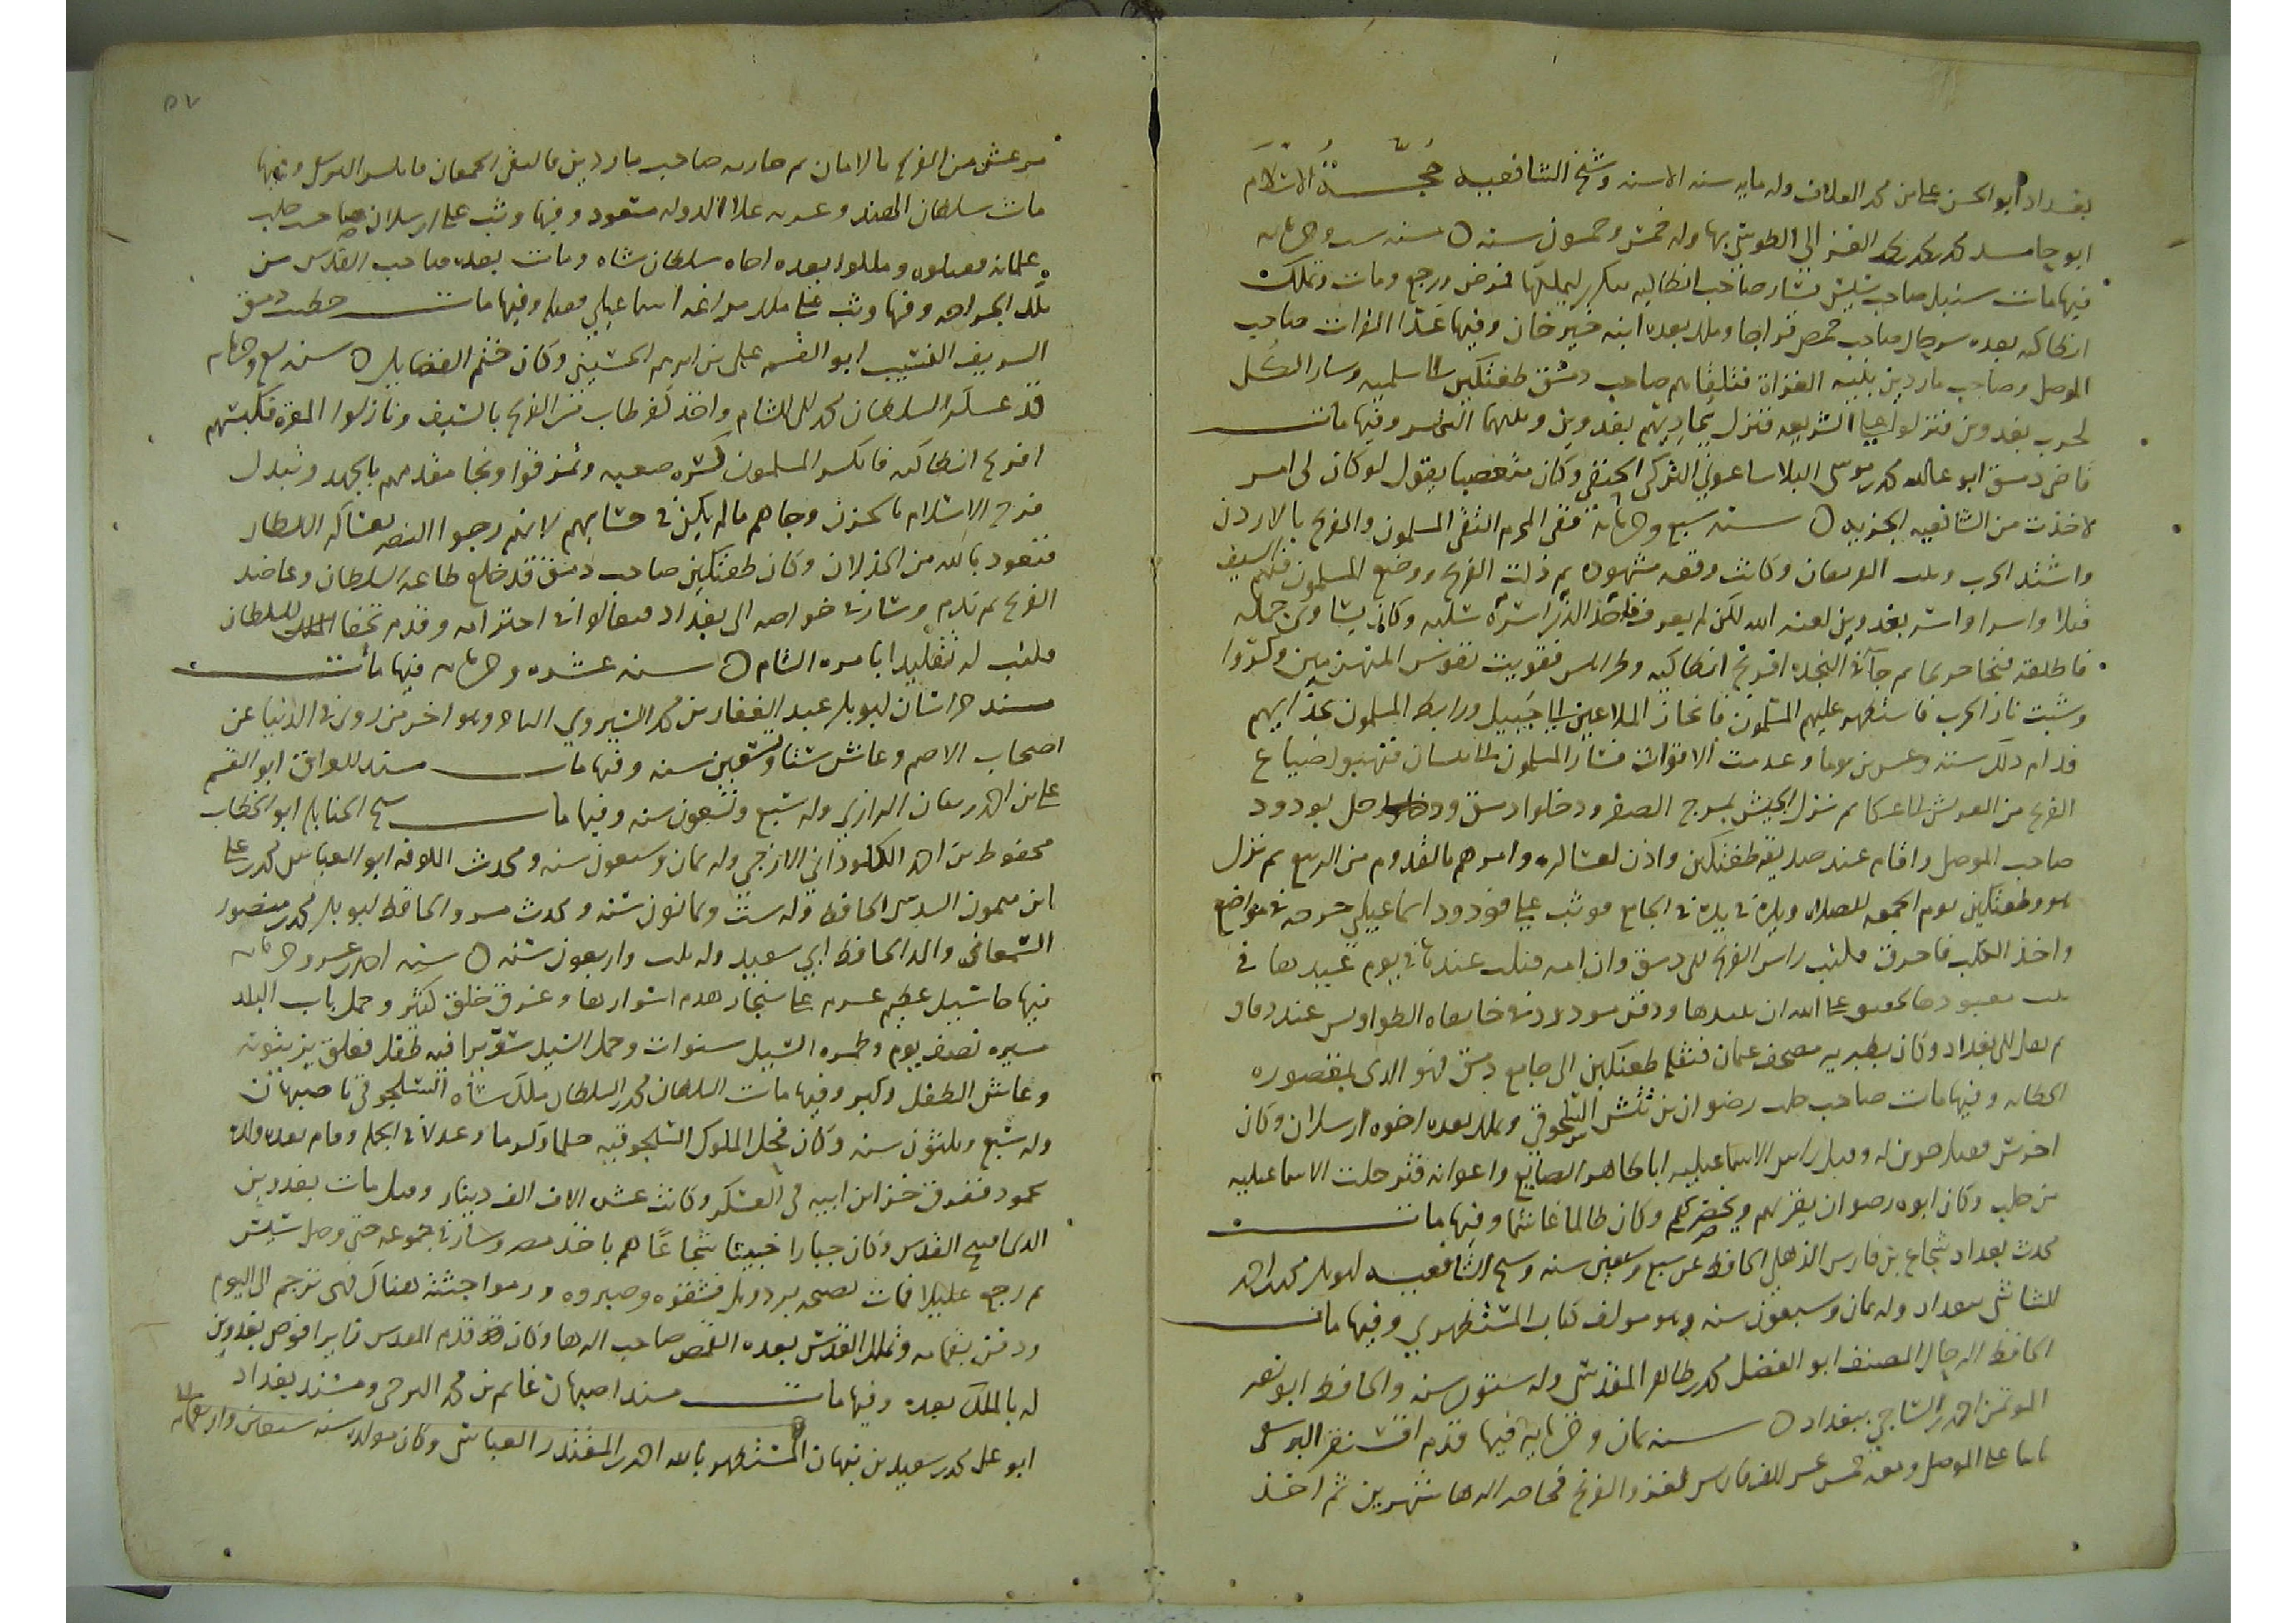 بغداد ابو الحسن علي بن محمد العلاف وله مايه سنه الا سنه وشيخ الشافعيه حُجّةُ الاسلام
ابو حامد محمد بن محمد بن محمد الغزالي الطوسي بها وله خمس وخمسون سنه ○ سنه ست وخمسمايه
فيها مات سنبل صاحب سيس فسار صاحب انطاكيه تنكري ليملكها فمرض ورجع ومات وتملك
انطاكيه بعده سرجال وصاحب حمص قراجا وملك بعده ابنه خيرخان وفيها عدا الفرات صاحب
الموصل وصاحب ماردين بنيه الغزاة فتلقاهم صاحب دمشق طغتكين الى سلميه وسار الكل
لحرب بغدوين فنزلوا على الشريعه فنزل بحاذيهم بغدوين وبينهما النهر وفيها مات
قاضي دمشق ابو عبد الله محمد بن موسى البلاساغوني التركي الحنفي وكان متعصبا يقول لو كان لي امر
لاخذت من الشافعيه الجزيه ○ سنه سبع وخمسمايه ففي المحرم التقى المسلمون والفرنج بالاردن
واشتد الحرب وثبت الفريقان وكانت وقعه مشهوده ثم ذلت الفرنج ووضع المسلمون فيهم السيف
قتلا واسرا واسر بغدوين لعنه الله لكن لم يعرف فاخذ الذي اسره سلبه وكان يساوي جمله
فاطلقه فنجا جريحا ثم جاات النجده افرنج انطاكيه وطرابلس فقويت نفوس المنهزمين وكروا
وشبت نار الحرب فاستظهر عليهم المسلمون فانحاز الملاعين الى جبيل ورابط المسلمون بحذائهم
فدام ذلك سته وعشرين يوما وعدمت الاقوات فسار المسلمون الى بيسان فنهبوا ضياع
الفرنج من القدس الى عكا ثم نزل الجيش بمرج الصفر ودخلوا دمشق ودخل مودود
صاحب الموصل واقام عند صديقه طغتكين واذن لعساكره وامرهم بالقدوم من الربيع ثم نزل
هو وطغتكين يوم الجمعه للصلاه ويده في يده في الجامع فوثب على مودود اسماعيلي جرحه في مواضع
واخذ الكلب فاحرق فكتب راس الفرنج الى دمشق وان امه قتلت عميدها في يوم عيدها في
بيت معبودها لحقيق على الله ان يبيدها ودفن مودود في خانقاه الطواويس عند دقاق
ثم نقل الى بغداد وكان بطبريه مصحف عثمان فنقله طغتكين الى جامع دمشق فهو الذي بمقصوره
الخطابه وفيها مات صاحب حلب رضوان بن تتش السلجوقي وملك بعده اخوه ارسلان وكان
اخرس فقتل اخوين له وقتل راس الاسماعيليه ابا طاهر الصايغ واعوانه فترحلت الاسماعيليه
من حلب وكان ابوه رضوان يقربهم ويحضرهم وكان ظالما غاشما وفيها مات
محدث بغداد شجاع بن فارس الذهلي الحافظ عن سبع وسبعين سنه وشيخ الشافعيه ابو بكر محمد بن احمد
الشاشي ببغداد وله ثمان وسبعون سنه وهو مولف كتاب المستظهري وفيها مات
الحافظ الرحال المصنف ابو الفضل محمد بن طاهر المقدسي وله ستون سنه والحافظ ابو نصر
الموتمن احمد الساجي ببغداد ○ سنه ثمان وخمسمايه فيها قدم اقسنقر البرسقي
نائبا على الموصل ومعه خمس عشر الف فارس لغزو الفرنج فحاصر الرها شهرين ثم اخذ
٥٧
مرعش من الفرنج بالامان ثم حاربه صاحب ماردين فالتقى الجمعان فانكسر البرسقي وفيها
مات سلطان الهند وغزنه علا الدوله مسعود وفيها وثب على ارسلان صاحب حلب
غلمانه فقتلوه وملكوا بعده اخاه سلطان شاه ومات بعده صاحب القدس من
تلك الجراحه وفيها وثب على ملك مراغه اسماعيلي فقتله وفيها مات خطيب دمشق
الشريف النسيب ابو القسم علي بن ابرهيم الحسيني وكان ضخم الفضايل ○ سنه تسع وخمسمايه
قدم عسكر السلطان محمد الى الشام واخذ كفرطاب من الفرنج بالسيف ونازلوا المعره فكبستهم
افرنج انطاكيه فانكسر المسلمون كسره صعبه وتمزقوا ونجا مقدمهم بالجهد وتبدل
فرح الاسلام بالحزن وجاهم ما لم يكن في حسابهم لانهم رجوا النصر بعساكر السلطان
فنعوذ بالله من الخذلان وكان طغتكين صاحب دمشق قد خلع طاعه السلطان وعاضد
الفرنج ثم ندم وسار في خواصه الى بغداد فبالغوا في احترامه وقدم تحفا للسلطان
فكتب له تقليدا بامره الشام ○ سنه عشره وخمسمايه فيها مات
مسند خراسان ابو بكر عبد الغفار بن محمد الشيروي التاجر وهو اخر من روى في الدنيا عن
اصحاب الاصم وعاش ستا وتسعين سنه وفيها مات مسند العراق ابو القسم
علي بن احمد بن بيان الرزاز وله سبع وتسعون سنه وفيها مات شيخ الحنابله ابو الخطاب
محفوظ بن احمد الكلوذاني الازجي وله ثمان وسبعون سنه ومحدث الكوفه ابو الغنائم محمد بن علي
ابن ميمون النرسي الحافظ وله ست وثمانون سنه ومحدث مرو الحافظ ابو بكر محمد بن منصور
السمعاني والد الحافظ ابي سعيد وله ثلث واربعون سنه ○ سنه احدى عشر وخمسمايه
فيها جا سيل عظيم عرم على سنجار هدم اسوارها وغرق خلق كثير وحمل باب البلد
مسيره نصف يوم وطمره السيل سنوات وحمل السيل سريرا فيه طفل فعلق بزيتونه
وعاش الطفل وكبر وفيها مات السلطان محمد بن السلطان ملك شاه السلجوقي باصبهان
وله سبع وثلثون سنه وكان فحل الملوك السلجوقيه حلما وكرما وعدلا في الجمله وقام بعده ولده
محمود ففرق خزاين ابيه في العسكر وكانت عشره الاف الف دينار وقيل مات بغدوين
الذي افتتح القدس وكان جبارا خبيثا شجاعا هم باخذ مصر وسار في جموعه حتى وصل تنيس
ثم رجع عليلا فمات بصبخه بردويل فشقوه وصبروه ورموا حشوته هناك فهي ترجم الى اليوم
ودفن بقمامه وتملك القدس بعده القمص صاحب الرها وكان قدم القدس زايرا فوصى بغدوين
له بالملك بعده وفيها مات مسند اصبهان غانم بن محمد البرجي ومسند بغداد
ابو علي محمد بن سعيد بن نبهان المستظهر بالله احمد بن المقتدر العباسي وكان مولده سنه سبعين واربعمايه